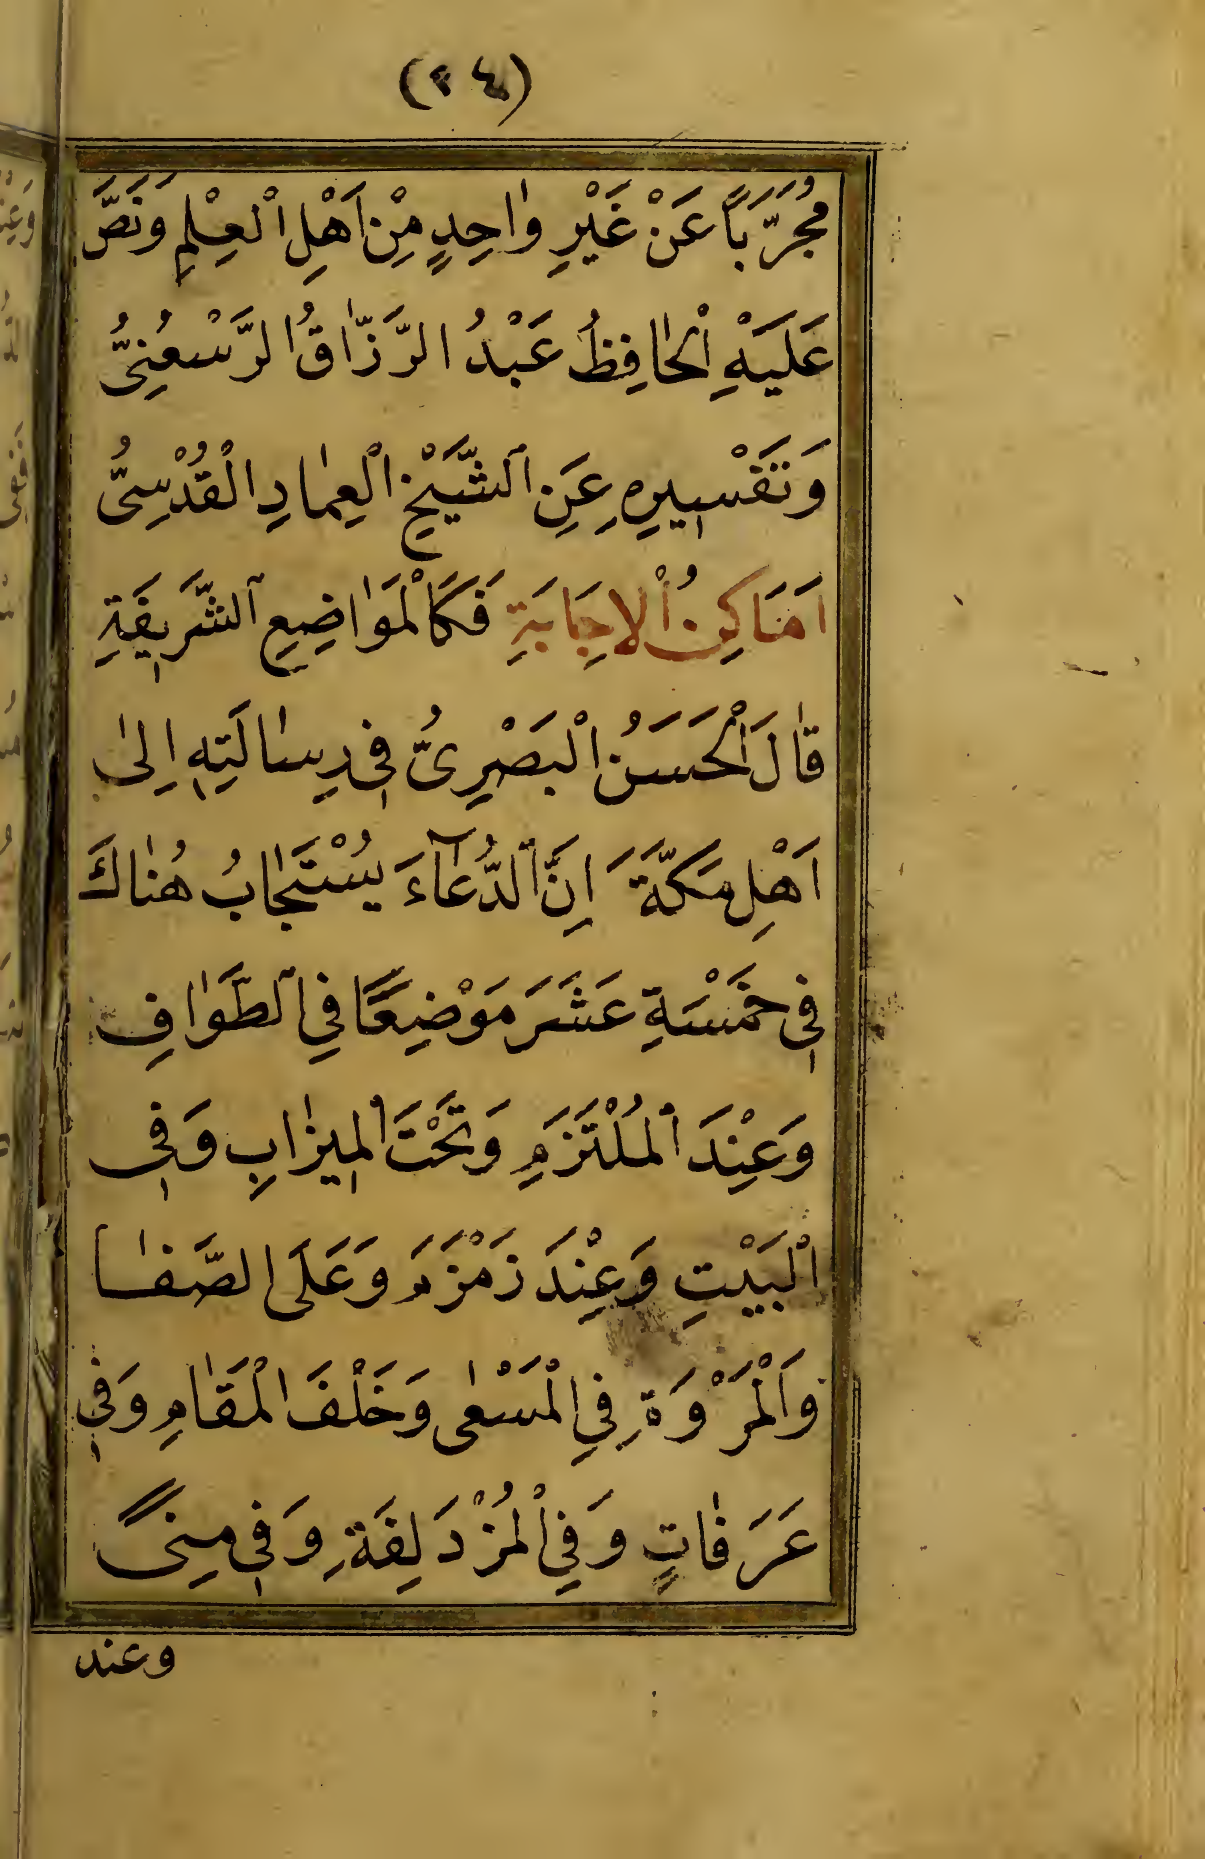 (٢٤)
مُجَرَّبًا عَنْ غَيْرِ وَاحِدٍ مِنْ اَهْلِ الْعِلْمِ وَنَصَّ
عَلَيْهِ الْحَافِظُ عَبْدُ الرَّزَّاقُ الرَّسْعُنِىُّ
وَتَفْسِيرِهِ عَنِ الشَّيْخِ الْعِمَادِ الْقُدْسِىُّ
اَمَاكِنُ الْاِجَابَةِ فَكَالْمَوَاضِعِ الشَّرِيفَةِ
قَالَ الْحَسَنُ الْبَصْرِىُّ فِى رِسَالَتِهِ اِلٰى
اَهْلِ مَكَّةَ اِنَّ الدُّعَآءَ يُسْتَجَابُ هُنَاكَ
فِى خَمْسَةِ عَشَرَ مَوْضِعًا فِي الطَّوَافِ
وَعِنْدَ الْمُلْتَزَمِ وَتَحْتَ الْمِيزَابِ وَفِى
الْبَيْتِ وَعِنْدَ زَمْزَمَ وَعَلَى الصَّفَا
وَالْمَرْوَةِ فِي الْمَسْعٰى وَخَلْفَ الْمَقَامِ وَفِى
عَرَفَاتٍ وَفِي الْمُزْدَلِفَةِ وَفِى مِنىً
وعند